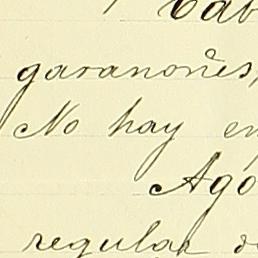 Cab
garanones,
No hay en
Ago
regular